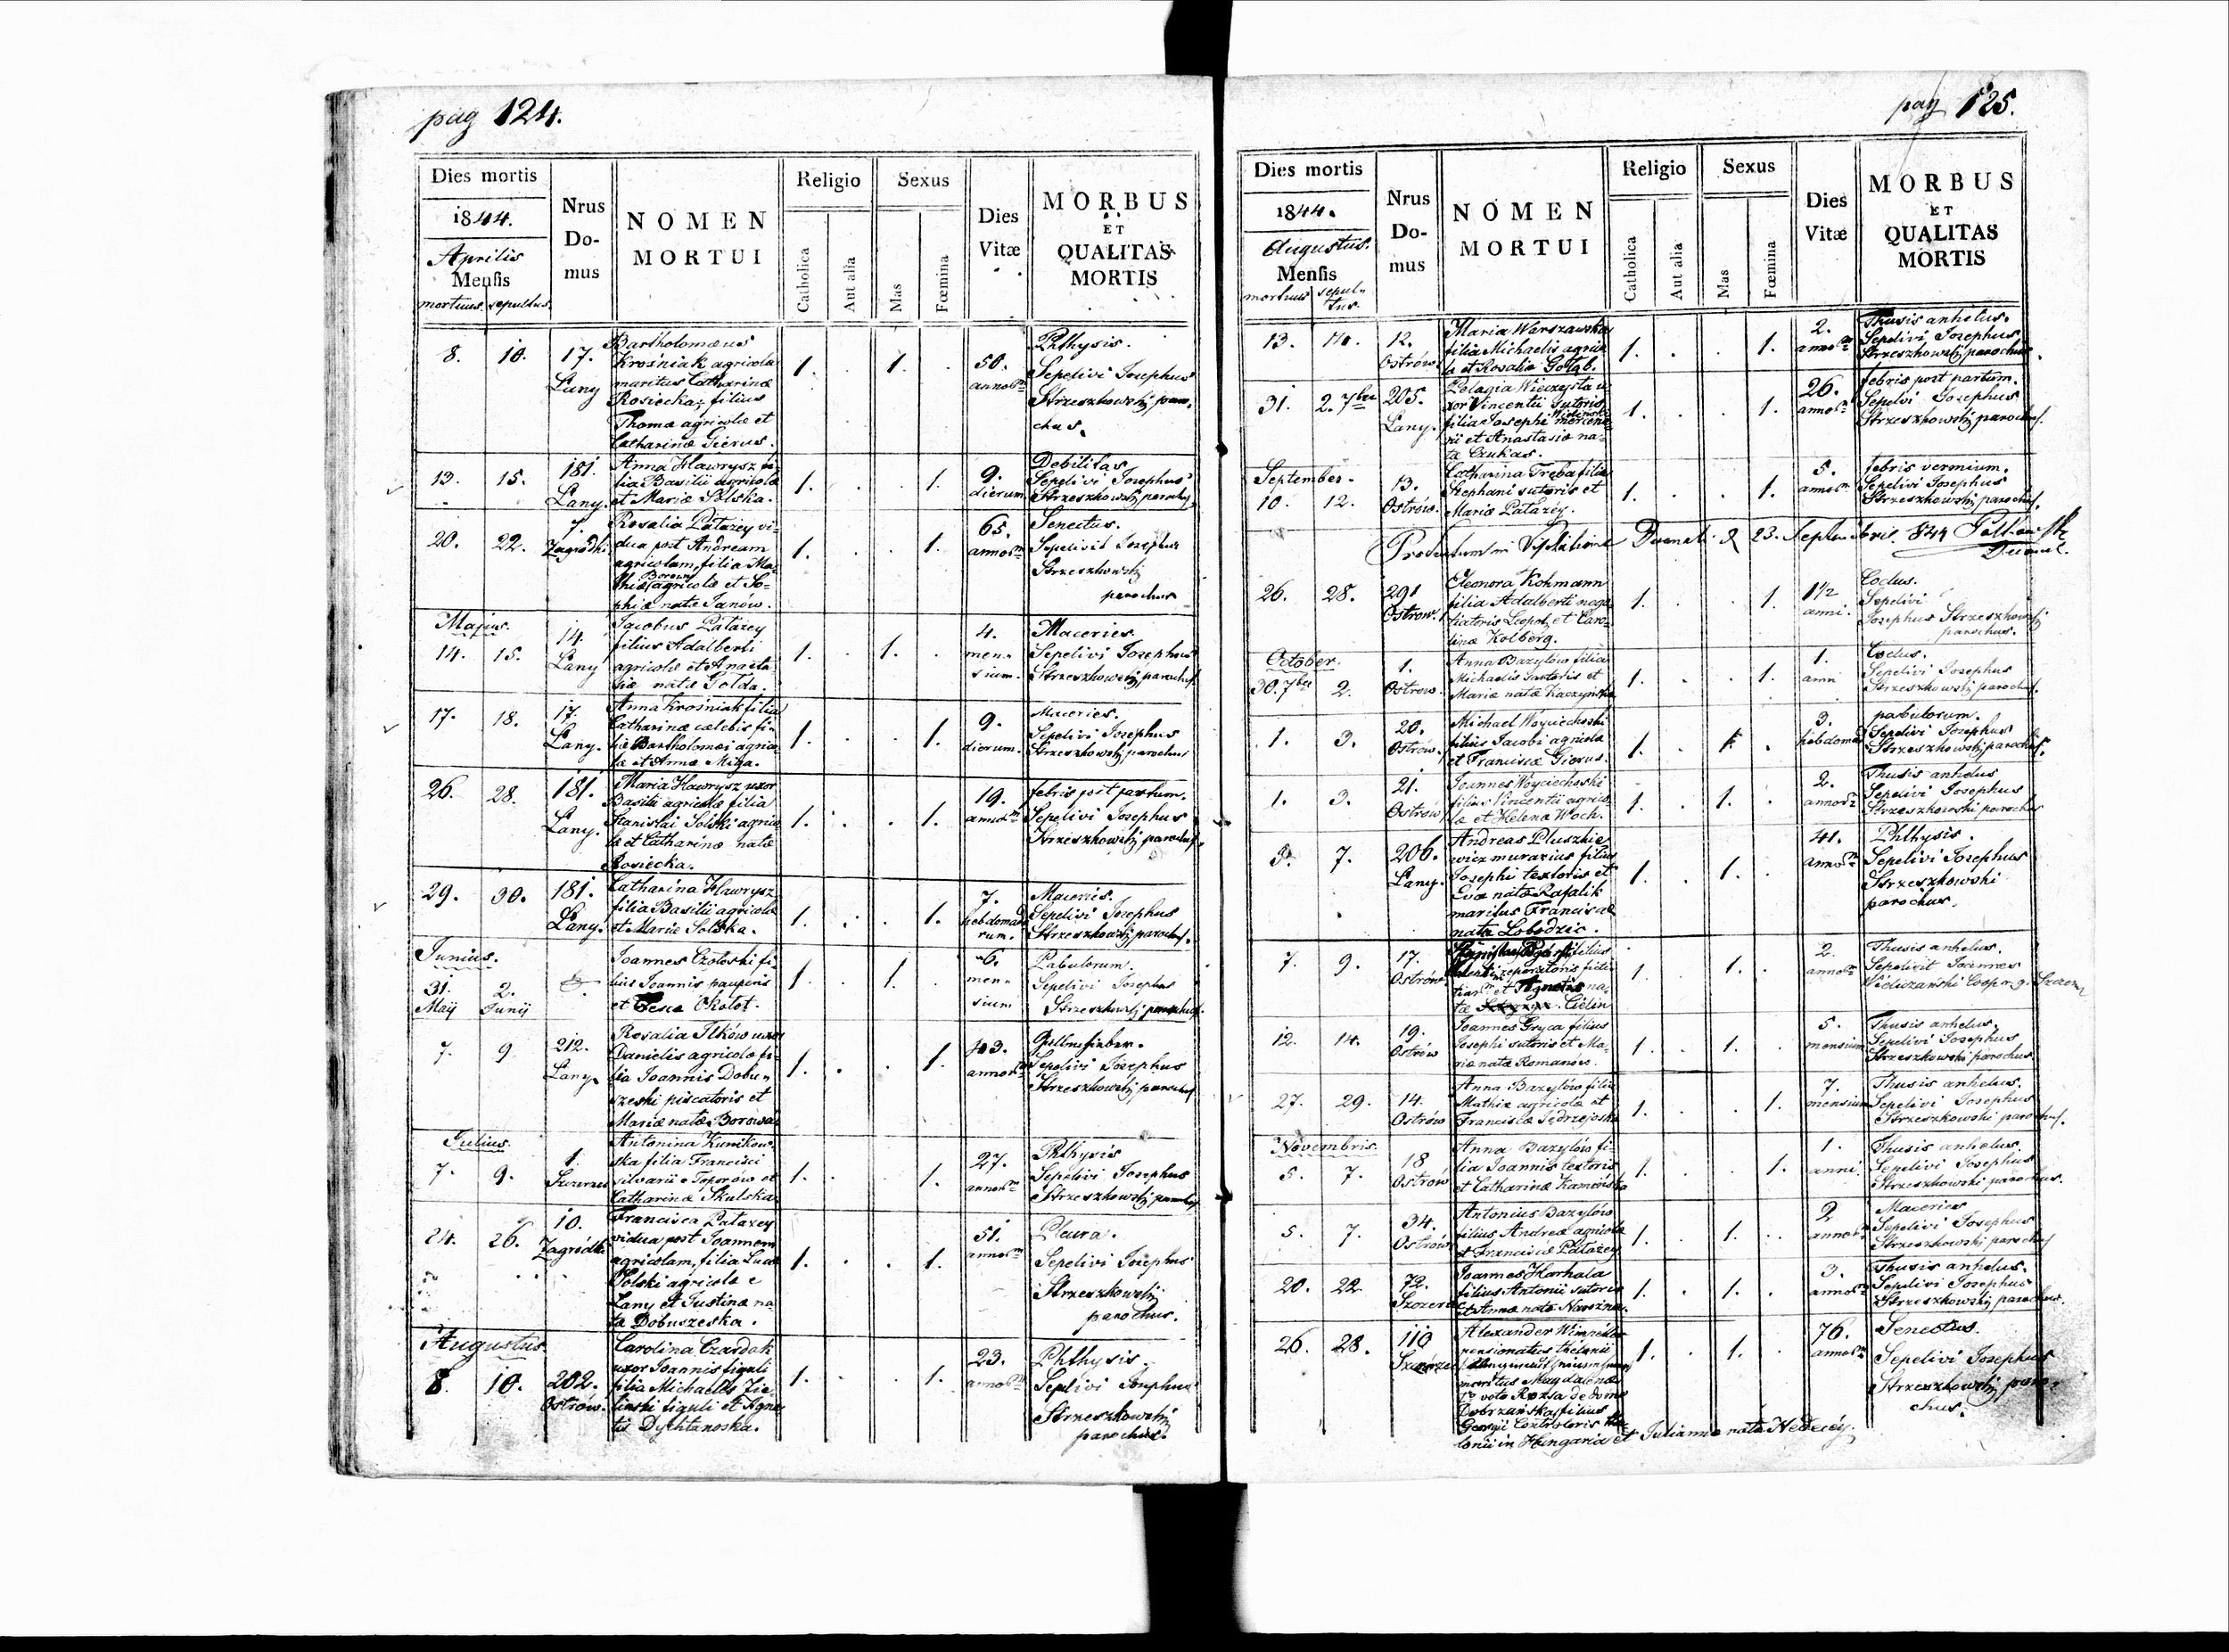 pag 124.
Dies mortis
1844.
Aprilis
Mensis
mortuus sepultus
Nrus
Do-
mus
NOMEN
MORTUI
Religio
Catholica
Aut alia
Sexus
Mas
Fœmina
Dies
Vitæ
MORBUS
ET
QUALITAS
MORTIS
8. 10. 17. Lany
Bartholomæus
Krośniak agricola
maritus Catharinæ
Rosiecka, filius
Thomæ agricolæ et
Catharinæ Gierus.
1. . 1. .
50. annorum
Phthysis.
Sepelivi Josephus
Strzeszkowskij paro-
chus.
13. 15. 181. Lany.
Anna Hawrysz fi-
lia Basilii agricolæ
et Mariæ Solska.
1. . . 1.
9. dierum
Debilitas
Sepelivi Josephus
Strzeszkowskij parochus
20. 22. 7. Zagrodki
Rosalia Patazey vi-
dua post Andream
agricolam, filia Ma-
thiæ Borowy agricolæ et So-
phiæ natæ Janów.
1. . . 1.
65. annorum
Senectus.
Sepelivit Josephus
Strzeszkowskij
parochus
Majus.
14. 15. 14. Lany
Jacobus Patazey
filius Adalberti
agricolæ et Anasta-
siæ natæ Golda.
1. . 1. .
4. men-
sium.
Macories.
Sepelivi Josephus
Strzeszkowskij parochus.
17. 18. 17. Lany.
Anna Krośniak filia
Catharinæ cælebis fi-
liæ Bartholomæi agrico-
læ et Annæ Miga.
1. . . 1.
9. dierum.
Macories.
Sepelivi Josephus
Strzeszkowskij parochus
26. 28. 181. Lany.
Maria Hawrysz uxor
Basilii agricolæ filia
Stanislai Solski agrico-
læ et Catharinæ natæ
Rosiecka.
1. . . 1.
19. annorum
febris post partum.
Sepelivi Josephus
Strzeszkowskij parochus.
29. 30. 181. Lany.
Catharina Hawrysz
filia Basilii agricolæ
et Mariæ Solska.
1. . . 1.
7. hebdomada
rum.
Macories.
Sepelivi Josephus
Strzeszkowskij parochus.
Junius.
31. 2.
Maij Junij
Joannes Czołoski fi-
lius Joannis pauperis
et Okołot.
1. . 1. .
6. men-
sium
Pabulorum.
Sepelivi Josephus
Strzeszkowskij parochus.
7. 9. 212. Lany.
Rosalia Ilków uxor
Danielis agricolæ fi-
lia Joannis Dobu-
szeski piscatoris et
Mariæ natæ Borowa
1. . . 1.
43. annorum
Gallenfieber.
Sepelivi Josephus
Strzeszkowskij parochus
Julius.
7. 9. 1. Szczerzec
Antonina Kunikow-
ska filia Francisci
silvarii e Toporow et
Catharinæ Skulska
1. . . 1.
27. annorum
Phthysis
Sepelivi Josephus
Strzeszkowskij parochus
24. 26. 10. Zagródki
Francisca Patazey
vidua post Joannem
agricolam, filia Lucæ
Solski agricolæ e
Lany et Justinæ na-
tæ Dobuszeska.
1. . . 1.
51. annorum
Pleura.
Sepelivi Josephus
Strzeszkowskij
parochus.
Augustus
8. 10. 202. Ostrów.
Carolina Czardak
uxor Joannis figuli
filia Michaelis Zie-
linski figuli et Agne-
tis Dychtanoska.
1. . . 1.
23. annorum
Phthysis.
Seplivi Josephus
Strzeszkowskij
parochus.
pag 125.
Dies mortis
1844.
Augustus.
Mensis
mortuus sepul-
tus.
Nrus
Do-
mus
NOMEN
MORTUI
Religio
Catholica
Aut alia
Sexus
Mas
Fœmina
Dies
Vitæ
MORBUS
ET
QUALITAS
MORTIS
13. 14. 12. Ostrów
Maria Warszawska
filia Michaelis agrico-
læ et Rosaliæ Gołąb.
1. . . 1.
2. annorum
Thusis anhelus.
Sepelivi Josephus
Strzeszkowskij parochus.
31. 2. 7bris 205. Lany.
Pelagia Wieczysta u-
xor Vincentii sutoris
filia Josephi mercena-
rii et Anastasiæ na-
tæ Czukas.
1. . . 1.
26. annorum
febris post partum.
Sepelvi Josephus
Strzeszkowskij parochus.
September.
10. 12. 13. Ostrów.
Catharina Treba filia
Stephani sutoris et
Mariæ Patazey.
1. . . 1.
5. annorum
febris vermium.
Sepelivi Josephus
Strzeszkowskij parochus.
Productum in Visitatione Decanali d 23. Septembris 844
26. 28. 291 Ostrow.
Eleonora Kohmann
filia Adalberti nego-
tiatoris Leopol, et Caro-
linæ Kolberg.
1. . . 1.
1 1/2 anni.
Coclus.
Sepelivi
Josephus Strzeszkowskij
parochus.
October.
30. 7bris 2. 1. Ostrow.
Anna Bazylów filia
Michaelis Sartoris et
Mariæ natæ Kaczyńska
1. . . 1.
1. anni
Coclus.
Sepelivi Josephus
Strzeszkowskij parochus.
1. 3. 20. Ostrów.
Michael Woyciechoski
filius Jacobi agricolæ
et Franciscæ Gierus.
1. . 1. .
3. hebdoma
pabulorum.
Sepelivi Josephus
Strzeszkowskij parochus.
1. 3. 21. Ostrów
Joannes Woyciechoski
filius Vincentii agrico-
læ et Helenæ Woch.
1. . 1. .
2. annorum
Thusis anhelus
Sepelivi Josephus
Strzeszkowski parochus
5. 7. 206. Lany.
Andreas Pluszkie-
wicz murarius filius
Josephi textoris et
Evæ natæ Rafalik
maritus Franciscæ
natæ Lobodzic.
1. . 1. .
41. annorum
Phthysis.
Sepelivi Josephus
Strzeszkowski
parochus.
7. 9. 17. Ostrów
filius
et Agnetis na-
tæ Cielin
1. . 1. .
2. annorum
Thusis anhelus.
Sepelivit Joannes
12. 14. 19. Ostrów
Joannes Gryca filius
Josephi sutoris et Ma-
riæ natæ Romanów.
1. . 1. .
5. mensium
Thusis anhelus.
Sepelivi Josephus
Strzeszkowski parochus.
27. 29. 14. Ostrów
Anna Bazylów filia
Mathiæ agricolæ et
Franciscæ Jędrzejoska
1. . . 1.
7. mensium
Thusis anhelus.
Sepelivi Josephus
Strzeszkowski parochus.
Novembris.
5. 7. 18 Ostrów
Anna Bazylów fi-
lia Joannis textoris
et Catharinæ Kamińska
1. . . 1.
1. anni.
Thusis anhelus.
Sepelivi Josephus
Strzeszkowski parochus.
5. 7. 34. Ostrów
Antonius Bazylów
filius Andreæ agricolæ
et Franciscæ Patazey
1. . 1. .
2 annorum
Macories
Sepelivi Josephus
Strzeszkowskij parochus
20. 22 72. Szczerzec
Joannes Harhala
filius Antonii sutoris
et Annæ natæ
1. . 1. .
3. annorum
Thusis anhelus.
Sepelivi Josephus
Strzeszkowskij parochus.
26. 28. 110 Szczerzec
Alexander
pensionatus
maritus Magdalenæ
1o voto Rozsa de domo
Dobrzańska, filius
Georgii Contraloris
lonii in Hungaria et Juliannæ natæ
1. . 1. .
76. annorum
Senectus.
Sepelivi Josephus
Strzeszkowskij paro-
chus.